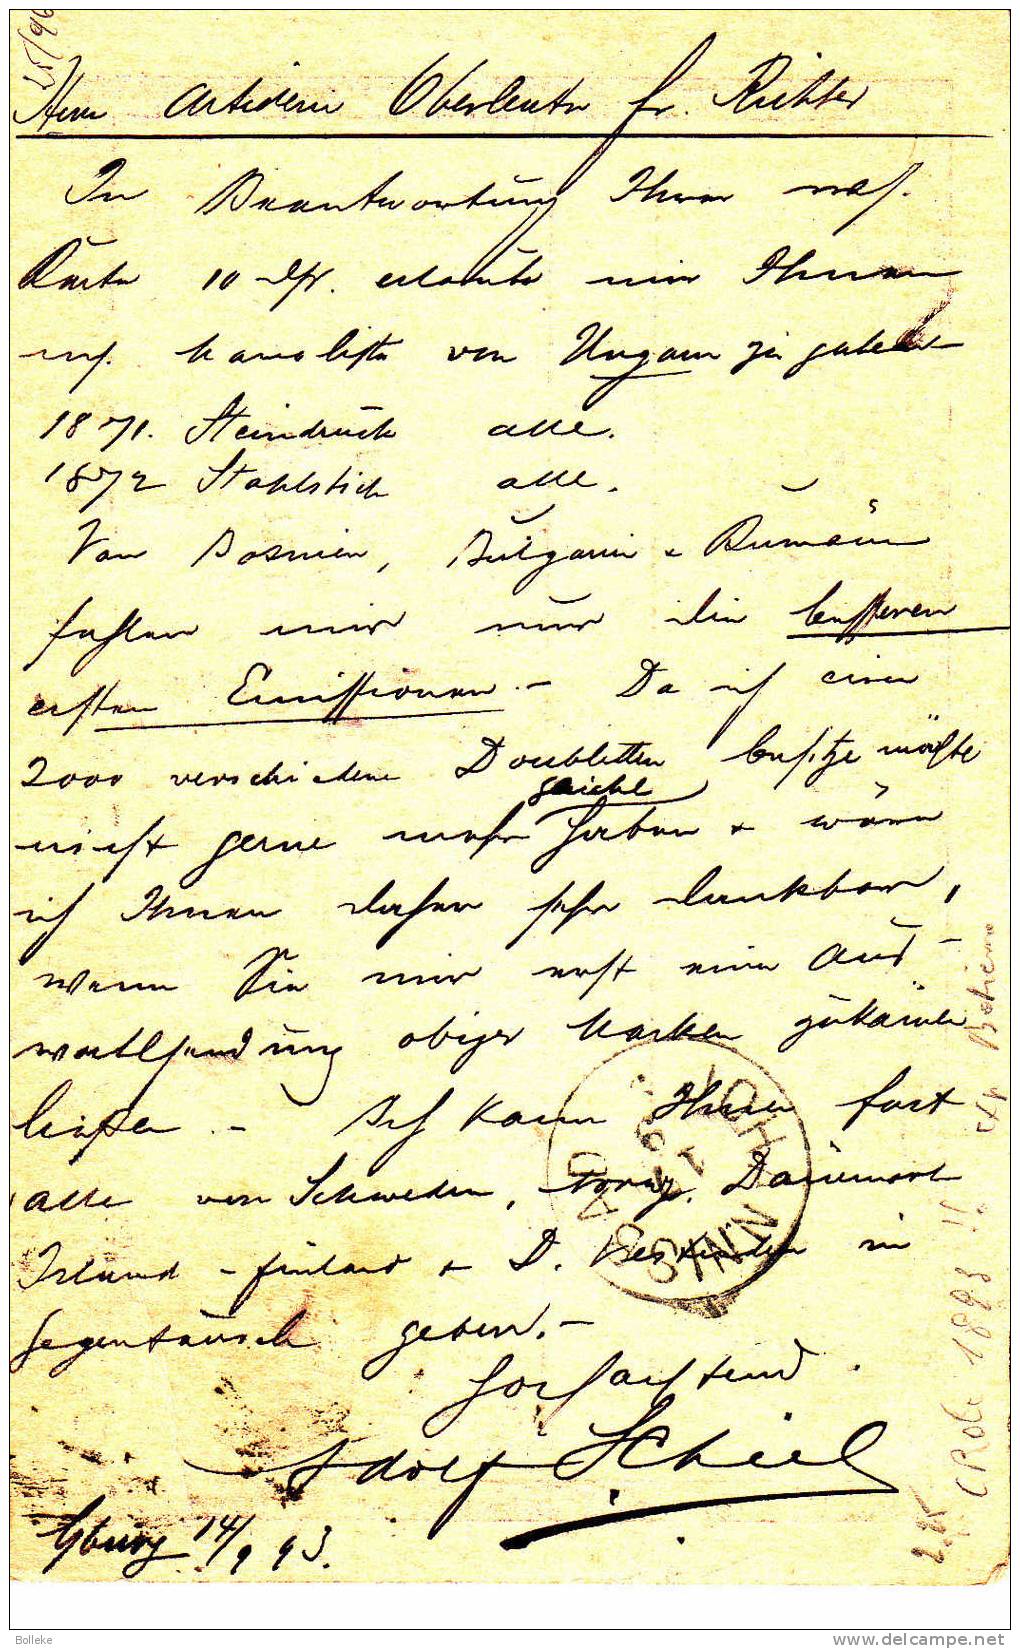 25/96
Herrn Artillerie Oberleutn Fr. Richter
In Beantwortung Ihrer wth.
Karte 10 dss. erlaube mir Ihnen
mh. Mancoliste von Ungarn zu geben
1871. Steindruck alle.
1872 Stahlstich alle.
Von Bosnien, Bulgarien & Rumänien
fehlen mir nur die besseren
ersten Emissionen. – Da ich circa
2000 verschiedene Doubletten besitze möchte
gleiche
nicht gerne mehr haben & wäre
ich Ihnen daher sehr dankbar,
wenn Sie mir erst eine Aus-
wahlsendung obiger Marken zukommen
ließen. – Ich kann Ihnen fast
alle von Schweden, Norwg. Dänemark
Island – Finland & D. Westindien in
Gegentausch geben. –
Hochachtend
Adolf Schiel
14/9 93.
1893
Bolleke
www.delcampe.net